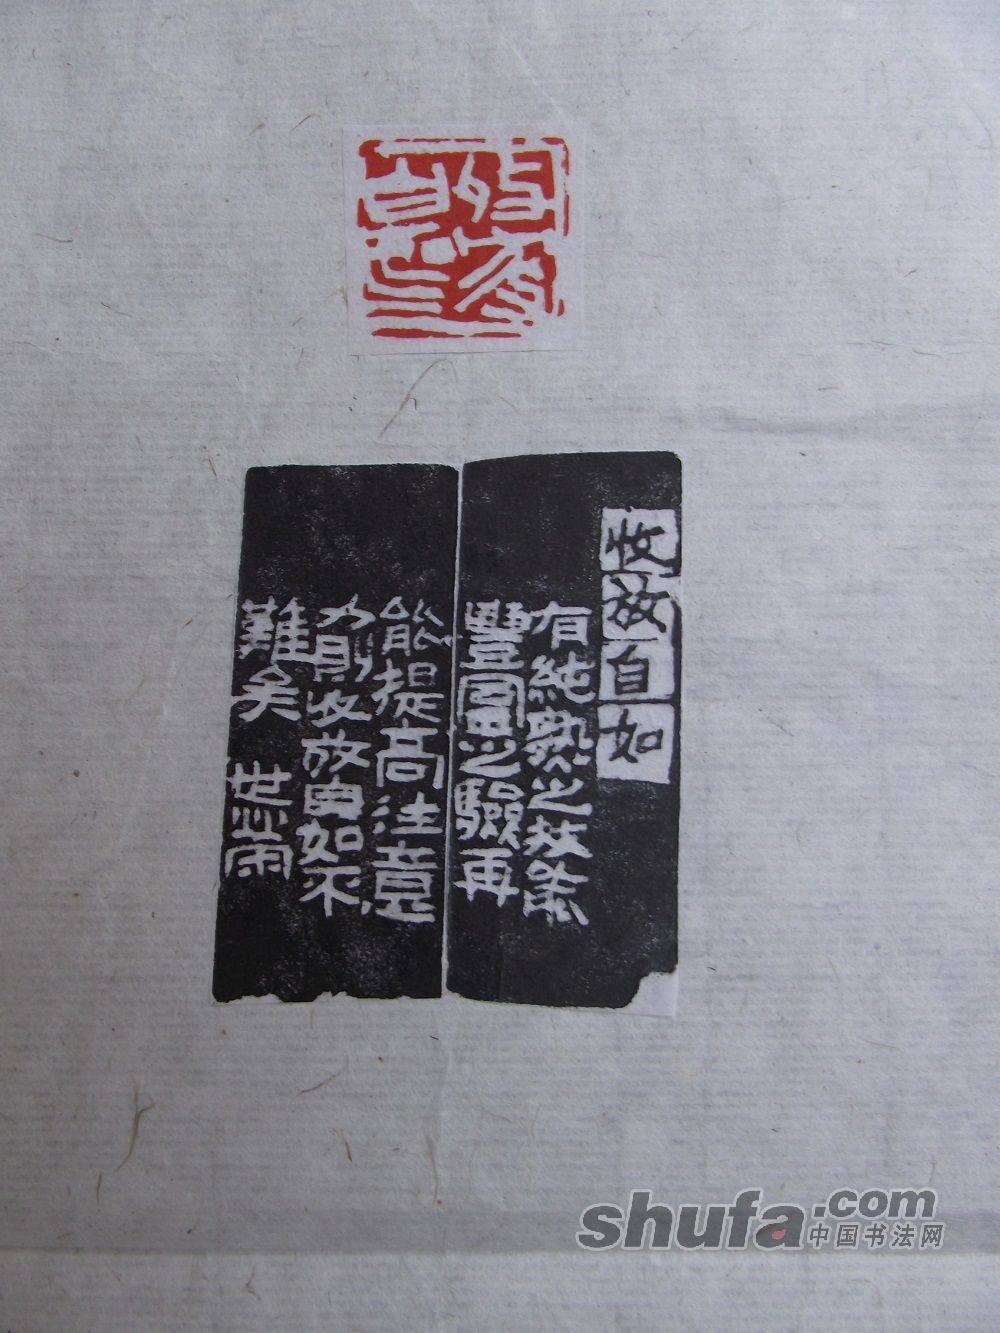 收放自如
有純熟之技
豐富之驗再
能提高注意
力則收放自如不
難矣 世
shufa.com
中国书法网